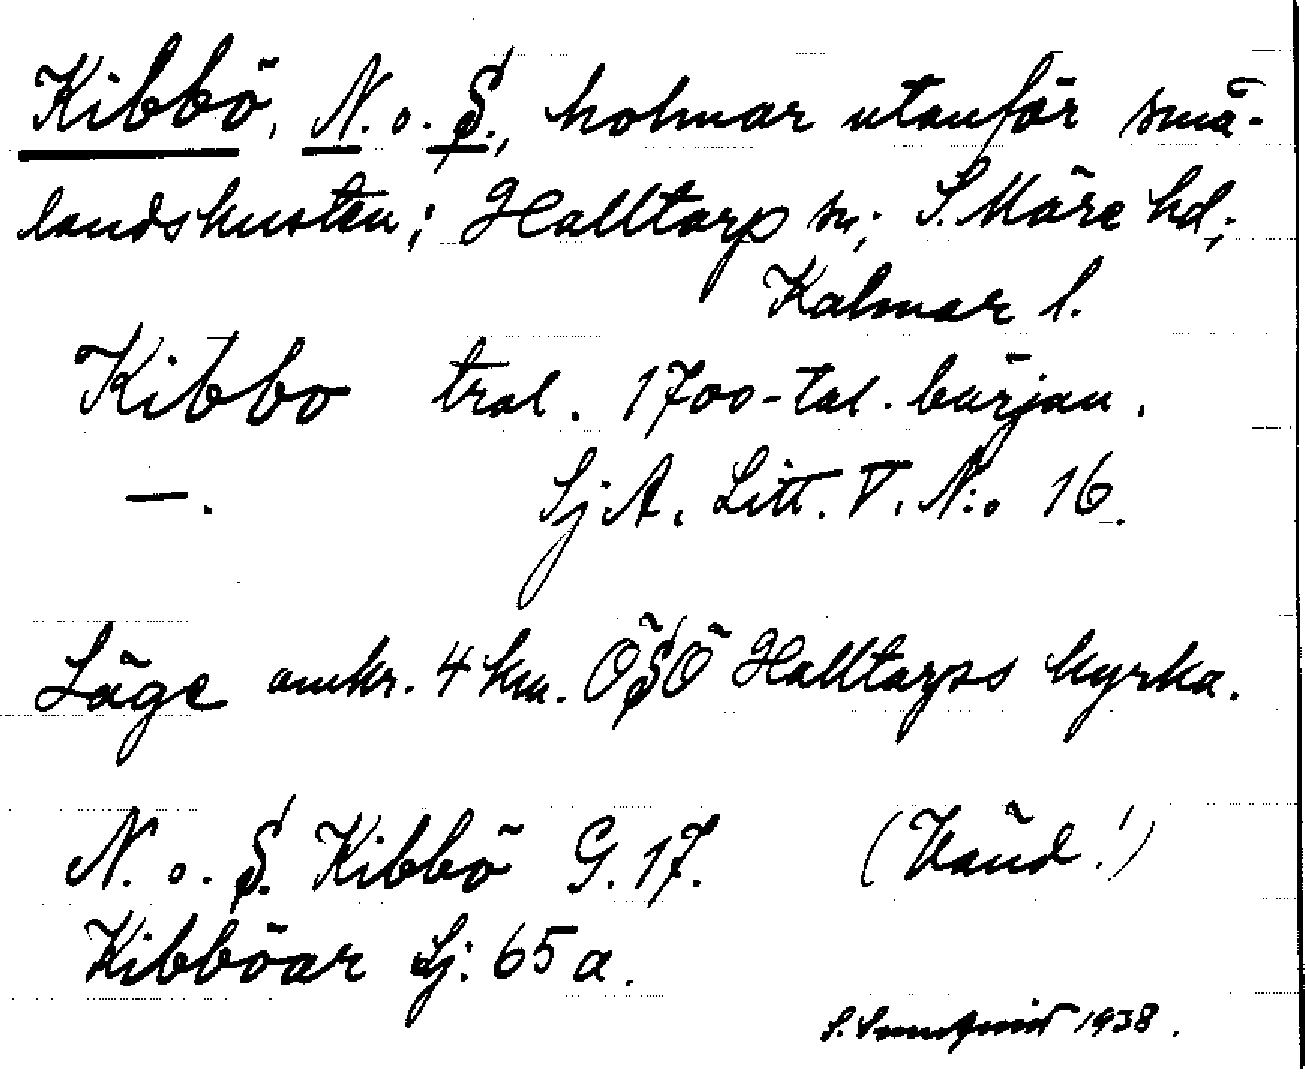 Kibbö, N. o. S., holmar utanför små-
landskusten; Halltorp sn; S. Möre hd;
Kalmar l.
Kibbo tral. 1700-tal. början.
—. SjA. Litt. V. N:o 16.
Läge omkr. 4 km. ÖSÖ Halltorps kyrka.
N. o. S. Kibbö G. 17. (Vänd!)
Kibböar Sj: 65 a.
S. 1938.